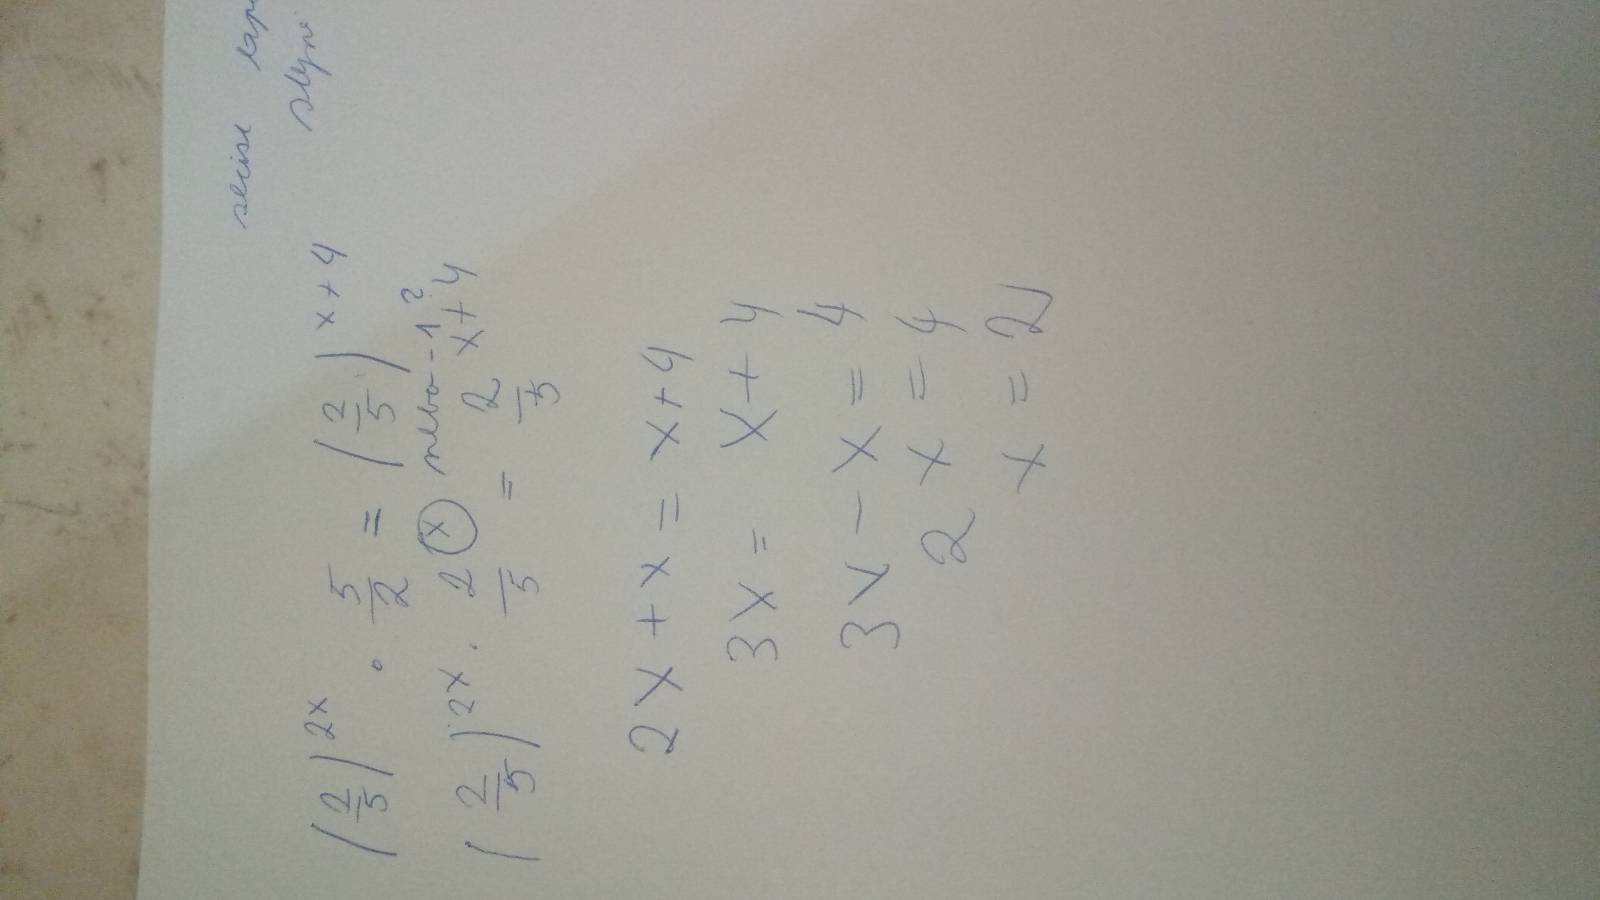 (2/5)^2x · 5/2 = (2/5)^x+4
(2/5)^2x · 2/5 ^x nebo -1 ? = 2/5 ^x+4
2x + x = x+4
3x = x+4
3x - x = 4
2x = 4
x = 2